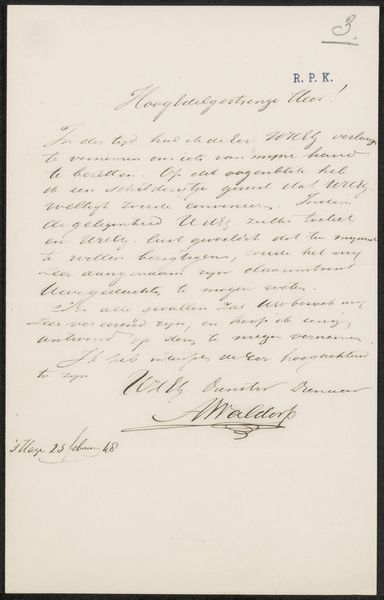 3.
R. P. K.
Hoog Edelgestrenge Heer!
In der tijd had ik de eer UHEG verlangen
te vernemen om iets van mijne hand
te bezitten. Op dit oogenblik heb
ik een schilderijtje gereed dat UHEG
welligt zoude convenieren. Indien
de gelegenheid UHEG zulks toelaat
en dezelve lust gevoeld dit ten mijnent
te willen bezigtigen, zoude het mij
zeer aangenaam zijn daaromtrent
Uwe gedachten te mogen weten.
In alle gevallen zal Uw bezoek mij
zeer vereerend zijn, en hoop ik eenig
antwoord op deze te mogen vernemen.
Ik heb intusschen de eer hoogachtend
te zijn
UHEG Dienstw Dienaar
A Waldorp
's Hage 25 februarij 48